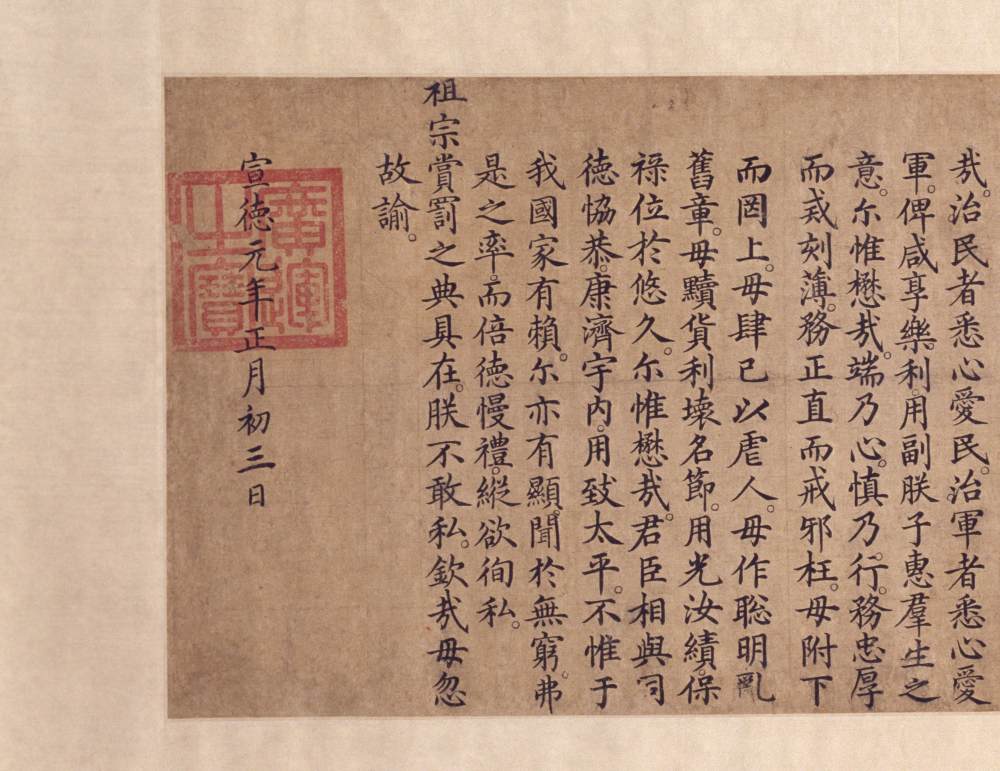 哉。治民者悉心愛民。治軍者悉心愛
軍。俾咸享樂利。用副朕子惠羣生之
意。尔惟懋哉。端乃心。慎乃行。務忠厚
而戒刻薄。務正直而戒邪枉。毋附下
而罔上。毋肆己以虐人。毋作聪明亂
舊章。毋黷貨利壞名節。用光汝績保
祿位於悠久。尔惟懋哉。君臣相與同
徳恊恭。康濟宇内。用致太平。不惟于
我國家有賴。尔亦有顯聞於無窮。弗
是之率。而倍徳慢禮。縱欲徇私。
祖宗賞罰之典具在。朕不敢私。欽哉毋忽
故諭。
宣徳元年正月初三日
廣運之寶